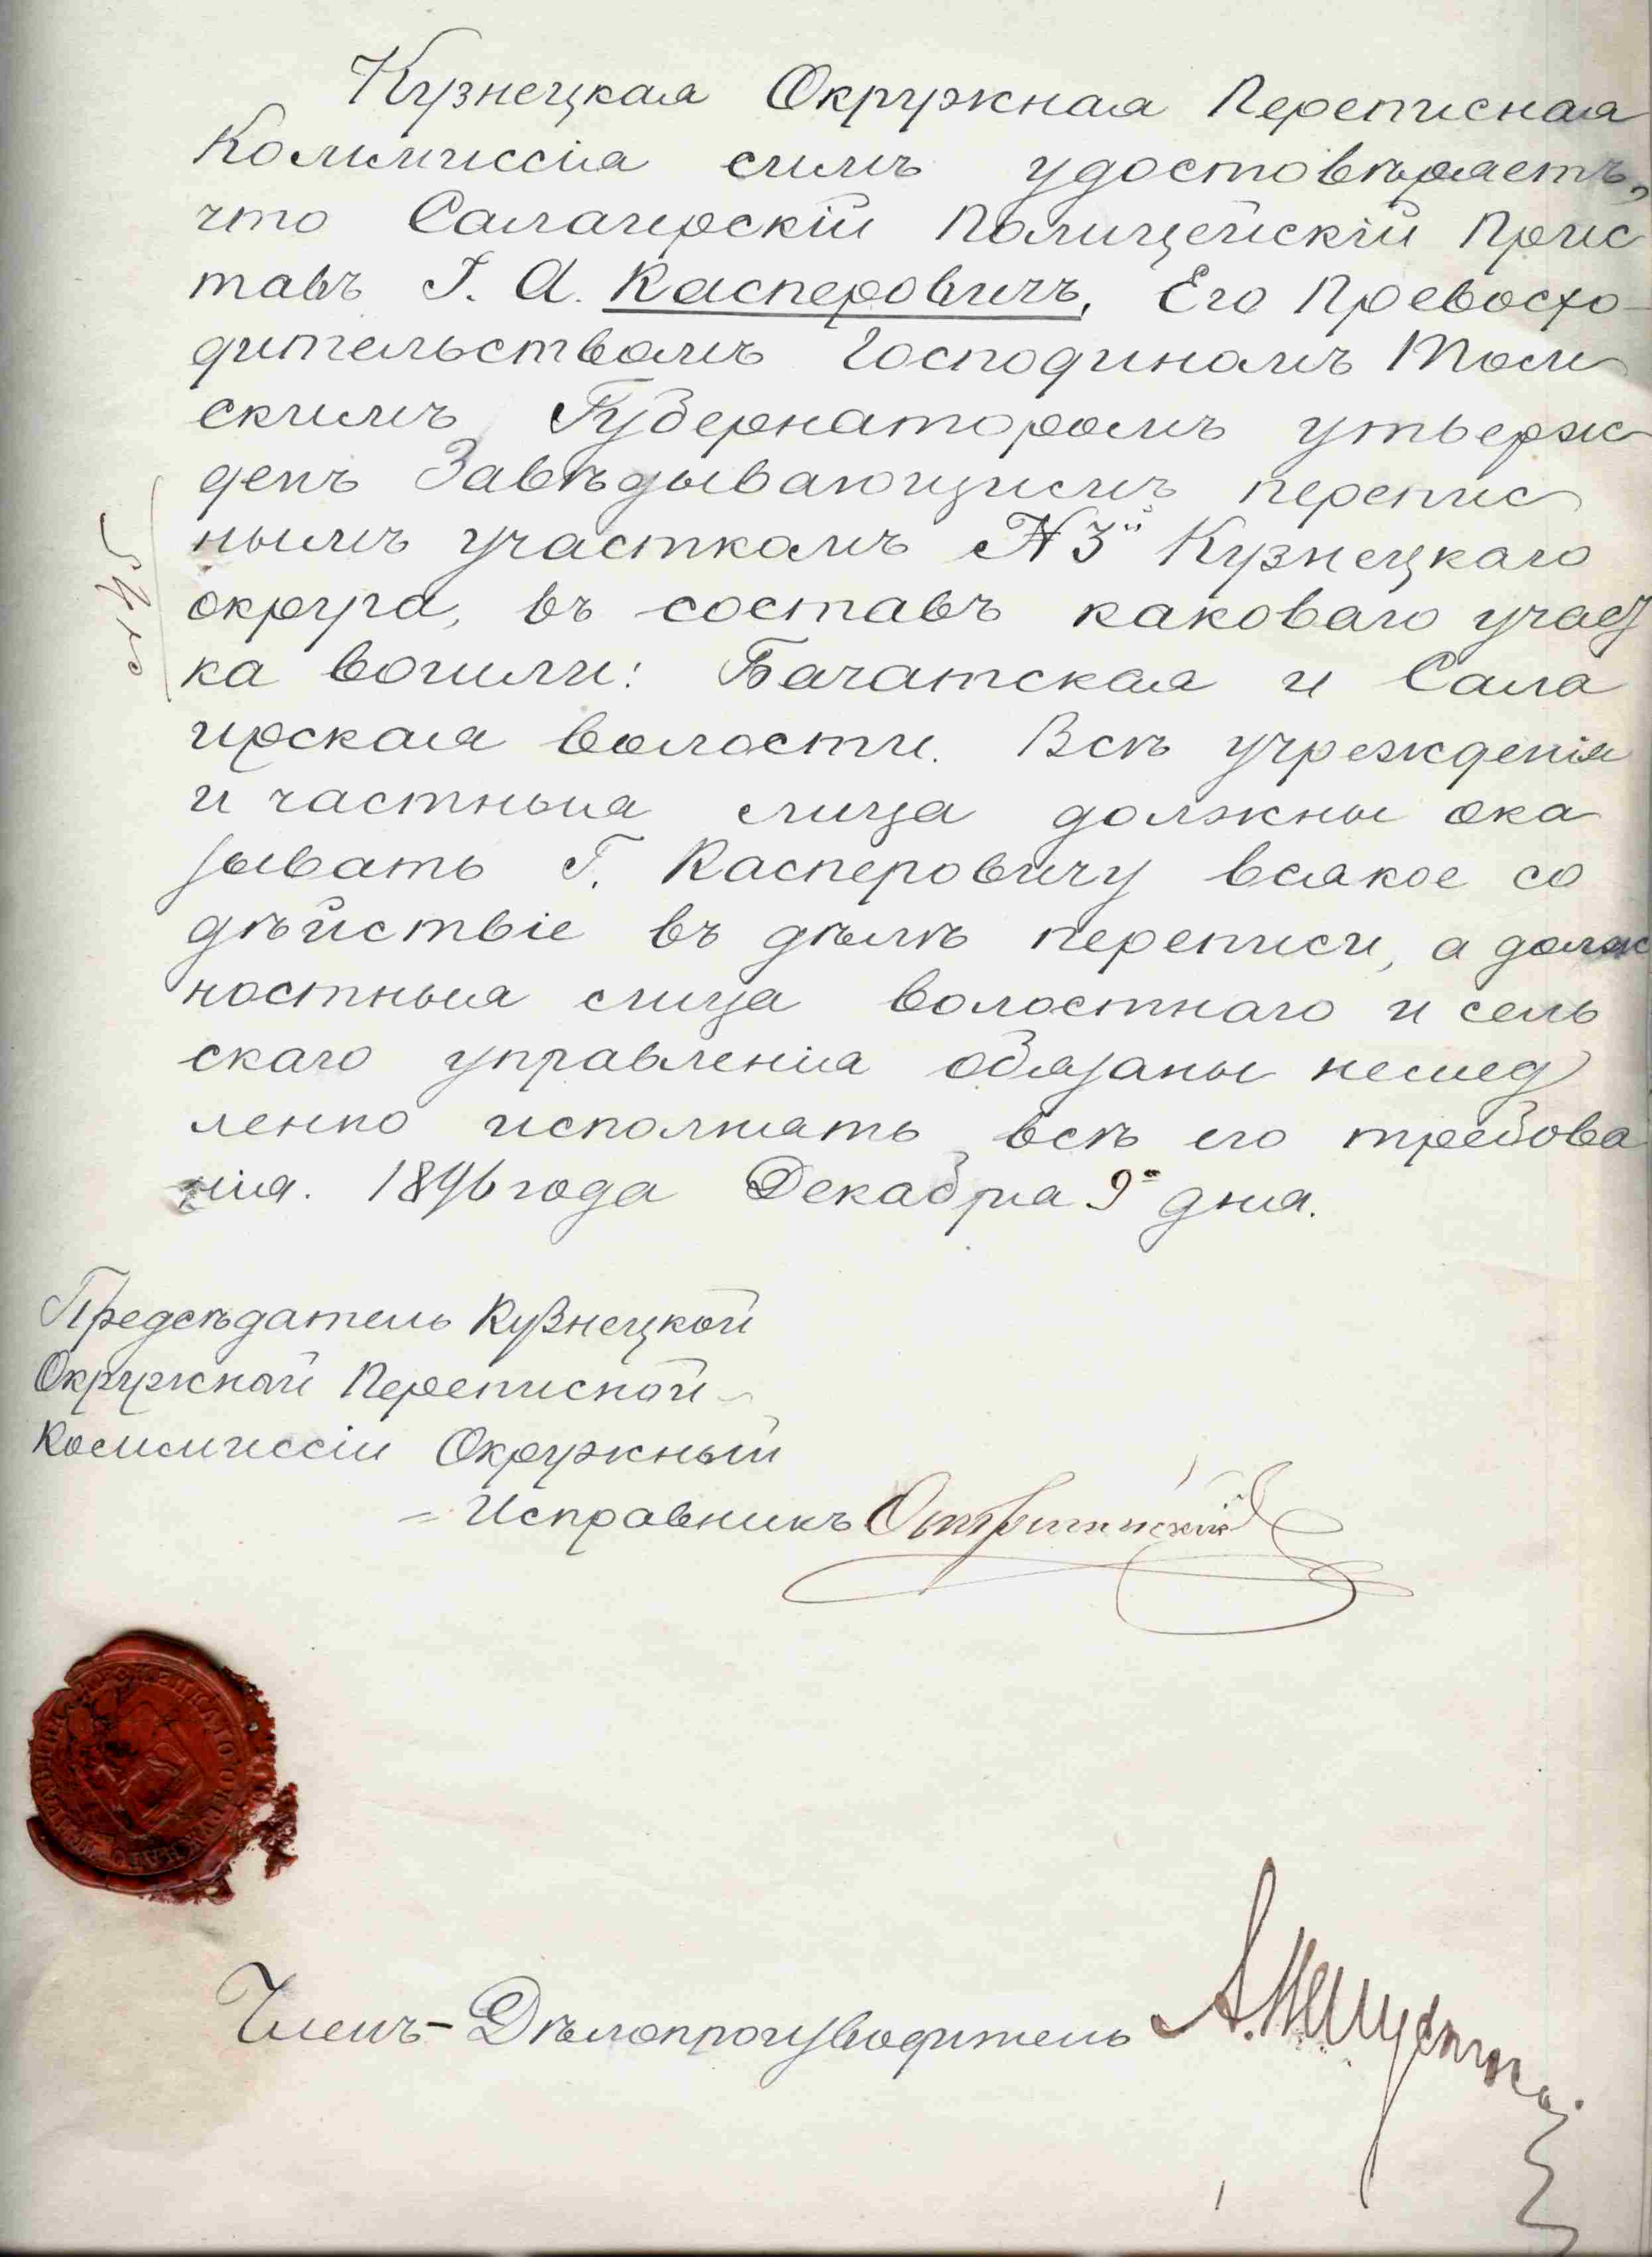 Кузнецкая Окружная Переписная
Коммиссія симъ удостовѣряетъ,
что Салаирскій Полицейскій Прис
тавъ Г. А. Касперовичъ, Его Превосхо-
дительствомъ Господиномъ Том
скимъ Губернаторомъ утверж
денъ Завѣдывающимъ перепис
нымъ участкомъ № 3й Кузнецкаго
округа, въ составъ каковаго участ
ка вошли: Бачатская и Сала
ирская волости. Всѣ учрежденія
и частныя лица должны ока
зывать Г. Касперовичу всякое со
дѣйствіе въ дѣлѣ переписи, а долж
ностныя лица волостнаго и сель
скаго управленія обязаны немед
ленно исполнять всѣ его требова
нія. 1896 года Декабря 9го дня.
Предсѣдатель Кузнецкой
Окружной Переписной
Коммиссіи Окружный
= Исправникъ
Членъ-Дѣлопроизводитель